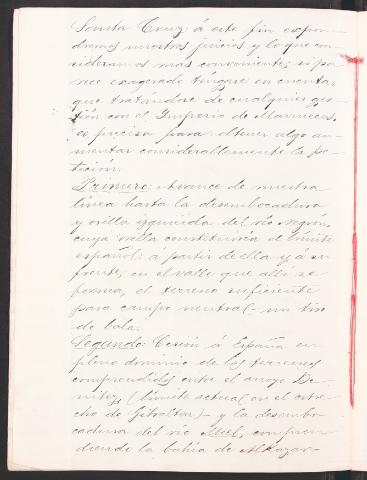 Santa Cruz: á este fin expon-
dremos nuestros juicios y lo que con-
sideramos mas conveniente, si pa-
rece exagerado téngase en cuenta,
que tratándose de cualquier ges-
tión con el Imperio de Marruecos,
es preciso para obtener algo au-
mentar considerablemente la pe-
tición.
Primero: Avance de nuestra
línea hasta la desembocadura
y orilla izquierda del río Negrón,
cuya orilla constituiría el límite
español: a partir de ella y á su
frente, en el valle que allí se
forma, el terreno suficiente
para campo neutral - un tiro
de bala.
Segundo: Cesión á España en
pleno dominio de los terrenos
comprendidos entre el arroyo Be-
nitez, (límite actual en el estre-
cho de Gibraltar) - y la desembo-
cadura del río Miel, compren-
diendo la bahía de Alcázar-